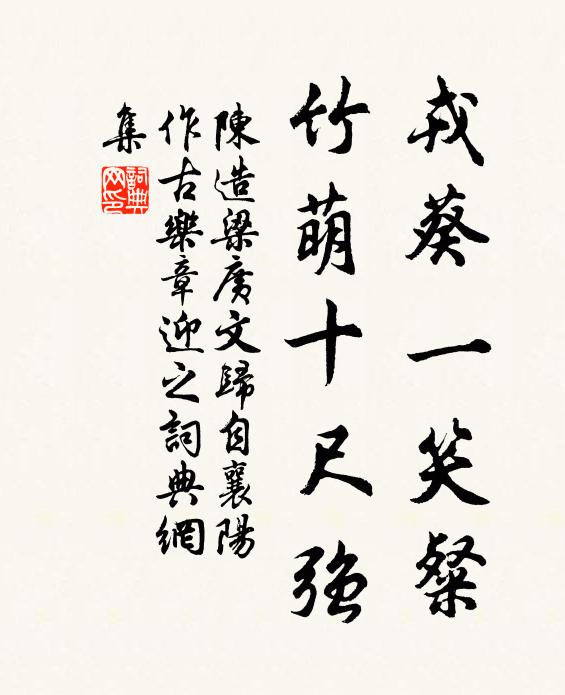 戎葵一笑粲
竹萌十尺強
陳造梁廣文歸自襄陽
作古樂章迎之詞典網
集
詞典
网印